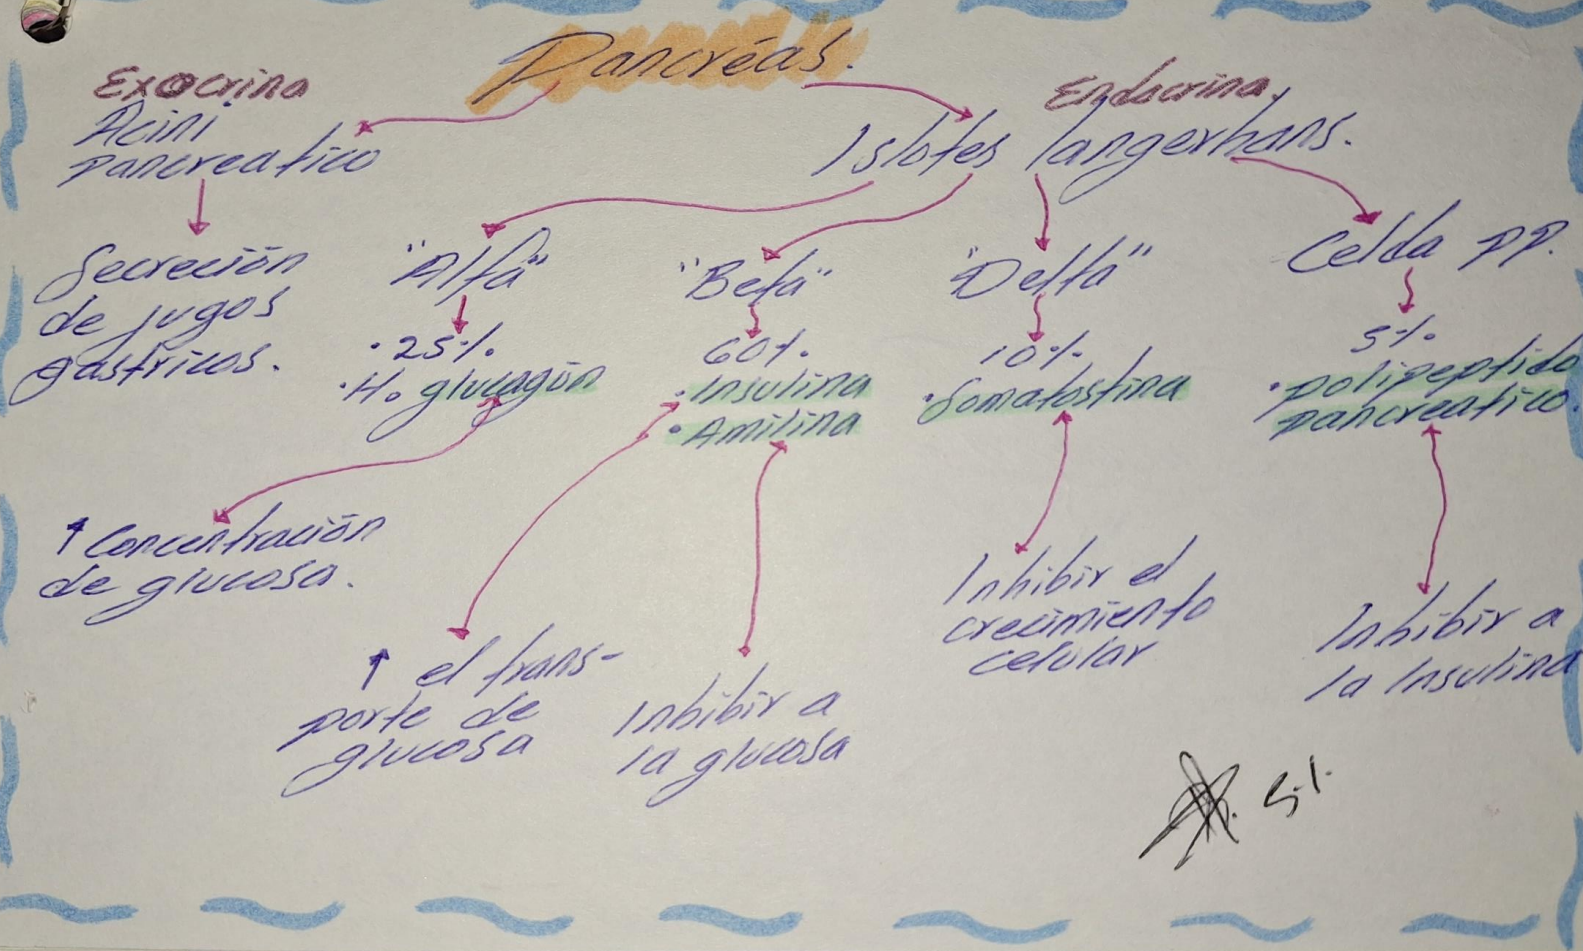 Pancréas.
Exocrina
Acini
pancreatico
Secreción
de jugos
gastricos.
Endocrina
Islotes langerhans.
"Alfa"
• 25%.
• H. glucagón
↑ Concentración
de glucosa.
"Beta"
60%.
• Insulina
• Amilina
↑ el trans-
porte de
glucosa
Inhibir a
la glucosa
"Delta"
10%
• Somatostina
Inhibir el
crecimiento
celular
Celda PP.
5%.
• polipeptido
pancreatico.
Inhibir a
la Insulina